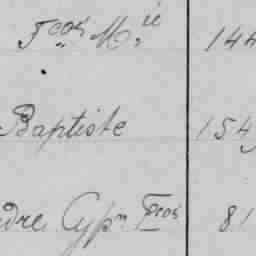 Fcois M.ie 144
Baptiste 154
dre Cypn Fcois 81